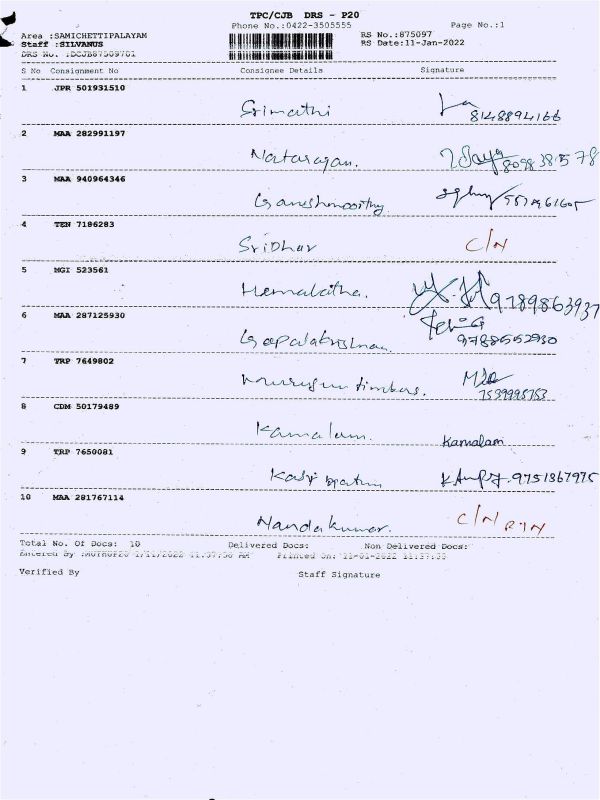 TPC/CJB DRS - P20
Phone No.:0422-3505555 Page No.:1
Area :SAMICHETTIPALAYAM RS No.:875097
Staff :SILVANUS RS Date:11-Jan-2022
DRS No. :DCJB87509701
S No Consignment No Consignee Details Signature
1 JPR 501931510
Srimathi 8148894166
2 MAA 282991197
Natarajan.
3 MAA 940964346
Ganeshmoorthy
4 TEN 7186283
Sridhar C/N
5 MGI 523561
Hemalatha. 9789863937
6 MAA 287125930
Gopalakrishnan. 9788552930
7 TRP 7649802
Murugun timbers. 7539995753
8 CDM 50179489
Kamalam. Kamalam
9 TRP 7650081
9751367975
10 MAA 281767114
Nandakumar. C/N
Total No. Of Docs: 10 Delivered Docs: Non Delivered Docs:
Entered By Printed On:
Verified By Staff Signature